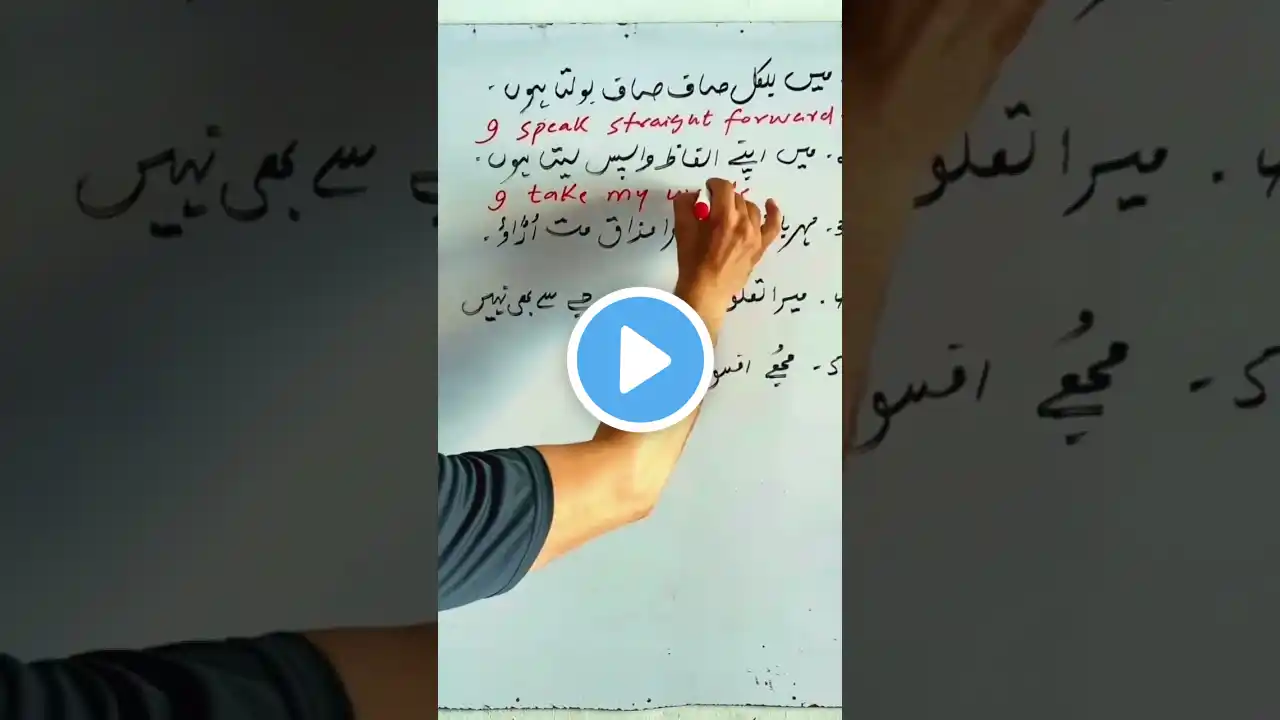 میں بلکل صاف صاف بولتا ہوں۔
I speak straight forward
میں اپنے الفاظ واپس لیتا ہوں۔
I take my
مذاق مت اُڑاؤ۔
میرا تعلق سے بھی نہیں
5۔ مجُھے